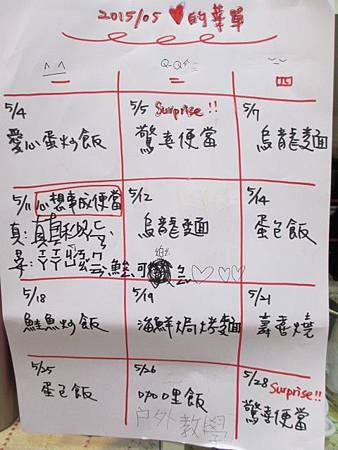 2015/05 ♥的菜單
^ ^
Q-Q
二
四
5/4
愛心蛋炒飯
5/5 Surprise!!
驚喜便當
5/7
烏龍麵
5/11 心想事成便當
5/12
烏龍麵
5/14
蛋包飯
5/18
鮭魚炒飯
5/19
海鮮焗烤麵
5/21
壽喜燒
5/25
蛋包飯
5/26
咖哩飯
戶外教學
5/28 Surprise!!
驚喜便當